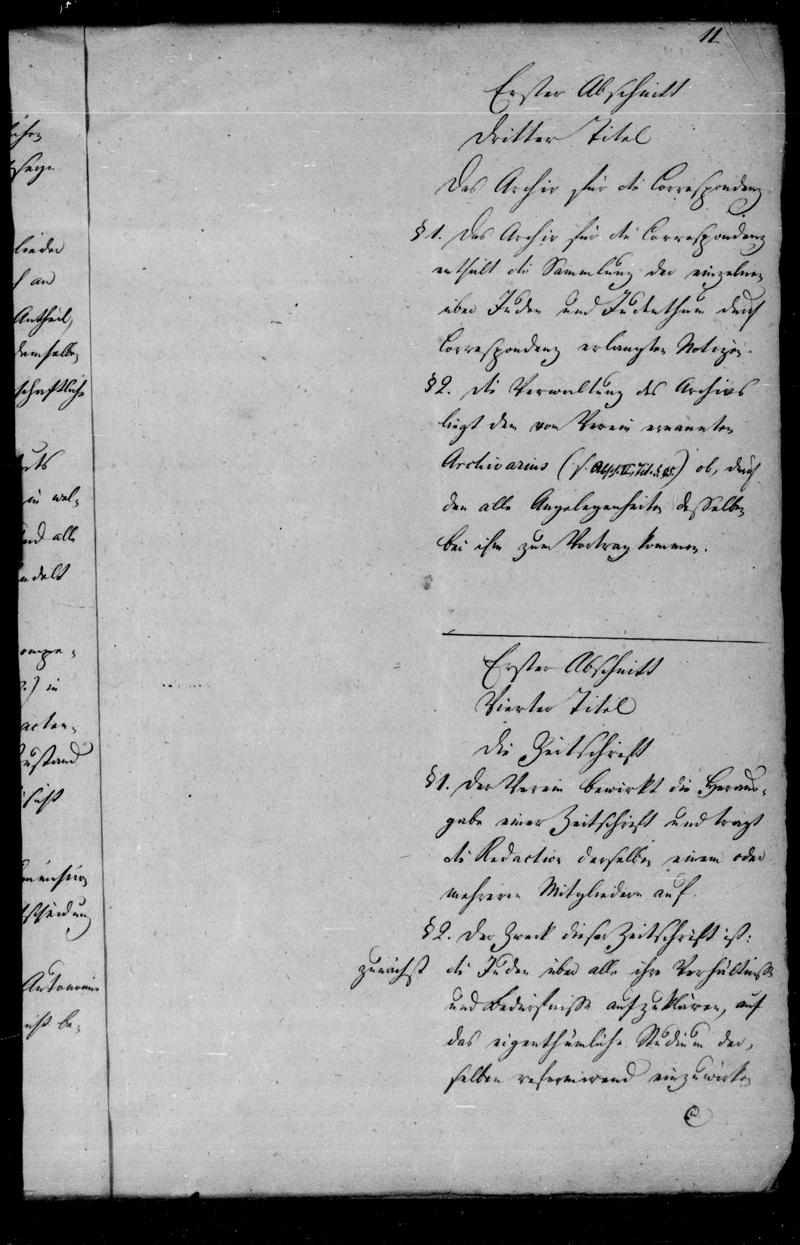 11
Erster Abschnitt
Dritter Titel
Das Archiv für die Correspondenz
§ 1. Das Archiv für die Correspondenz
enthält die Sammlung der einzelnen
über Juden und Judenthum durch
Correspondenz erlangten Notizen.
§ 2. Die Verwaltung des Archivs
liegt dem vom Verein ernannten
Archivarius (s. Abschn. II, Tit. ) ob, durch
den alle Angelegenheiten desselben
bei ihm zum Vortrag kommen.
Erster Abschnitt
Vierter Titel
Die Zeitschrift
§ 1. Der Verein bewirkt die Heraus-
gabe einer Zeitschrift und trägt
die Redaction derselben einem oder
mehreren Mitgliedern auf.
§ 2. Der Zweck dieser Zeitschrift ist:
zunächst die Juden über alle ihre Verhältnisse
und Bedürfnisse aufzuklären, auf
das eigenthümliche Studium der-
selben reformirend einzuwirken
lieder
an
Antheil,
demselben
schaftliche
in wel-
und alle
ndelt
in
acten-
ustand
be-